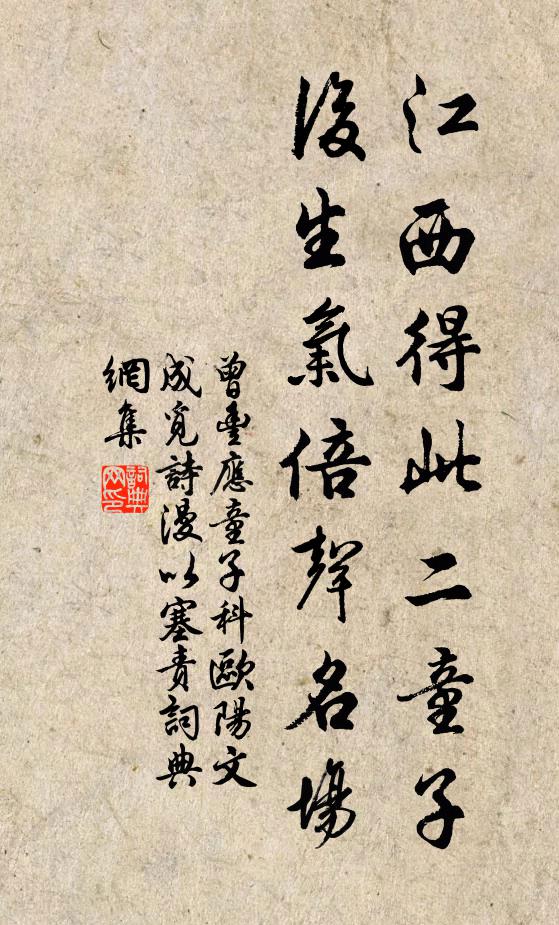 江西得此二童子
後生氣倍聲名場
曾豊應童子科歐陽文
成覓詩漫以塞責詞典
網集
詞典
网印